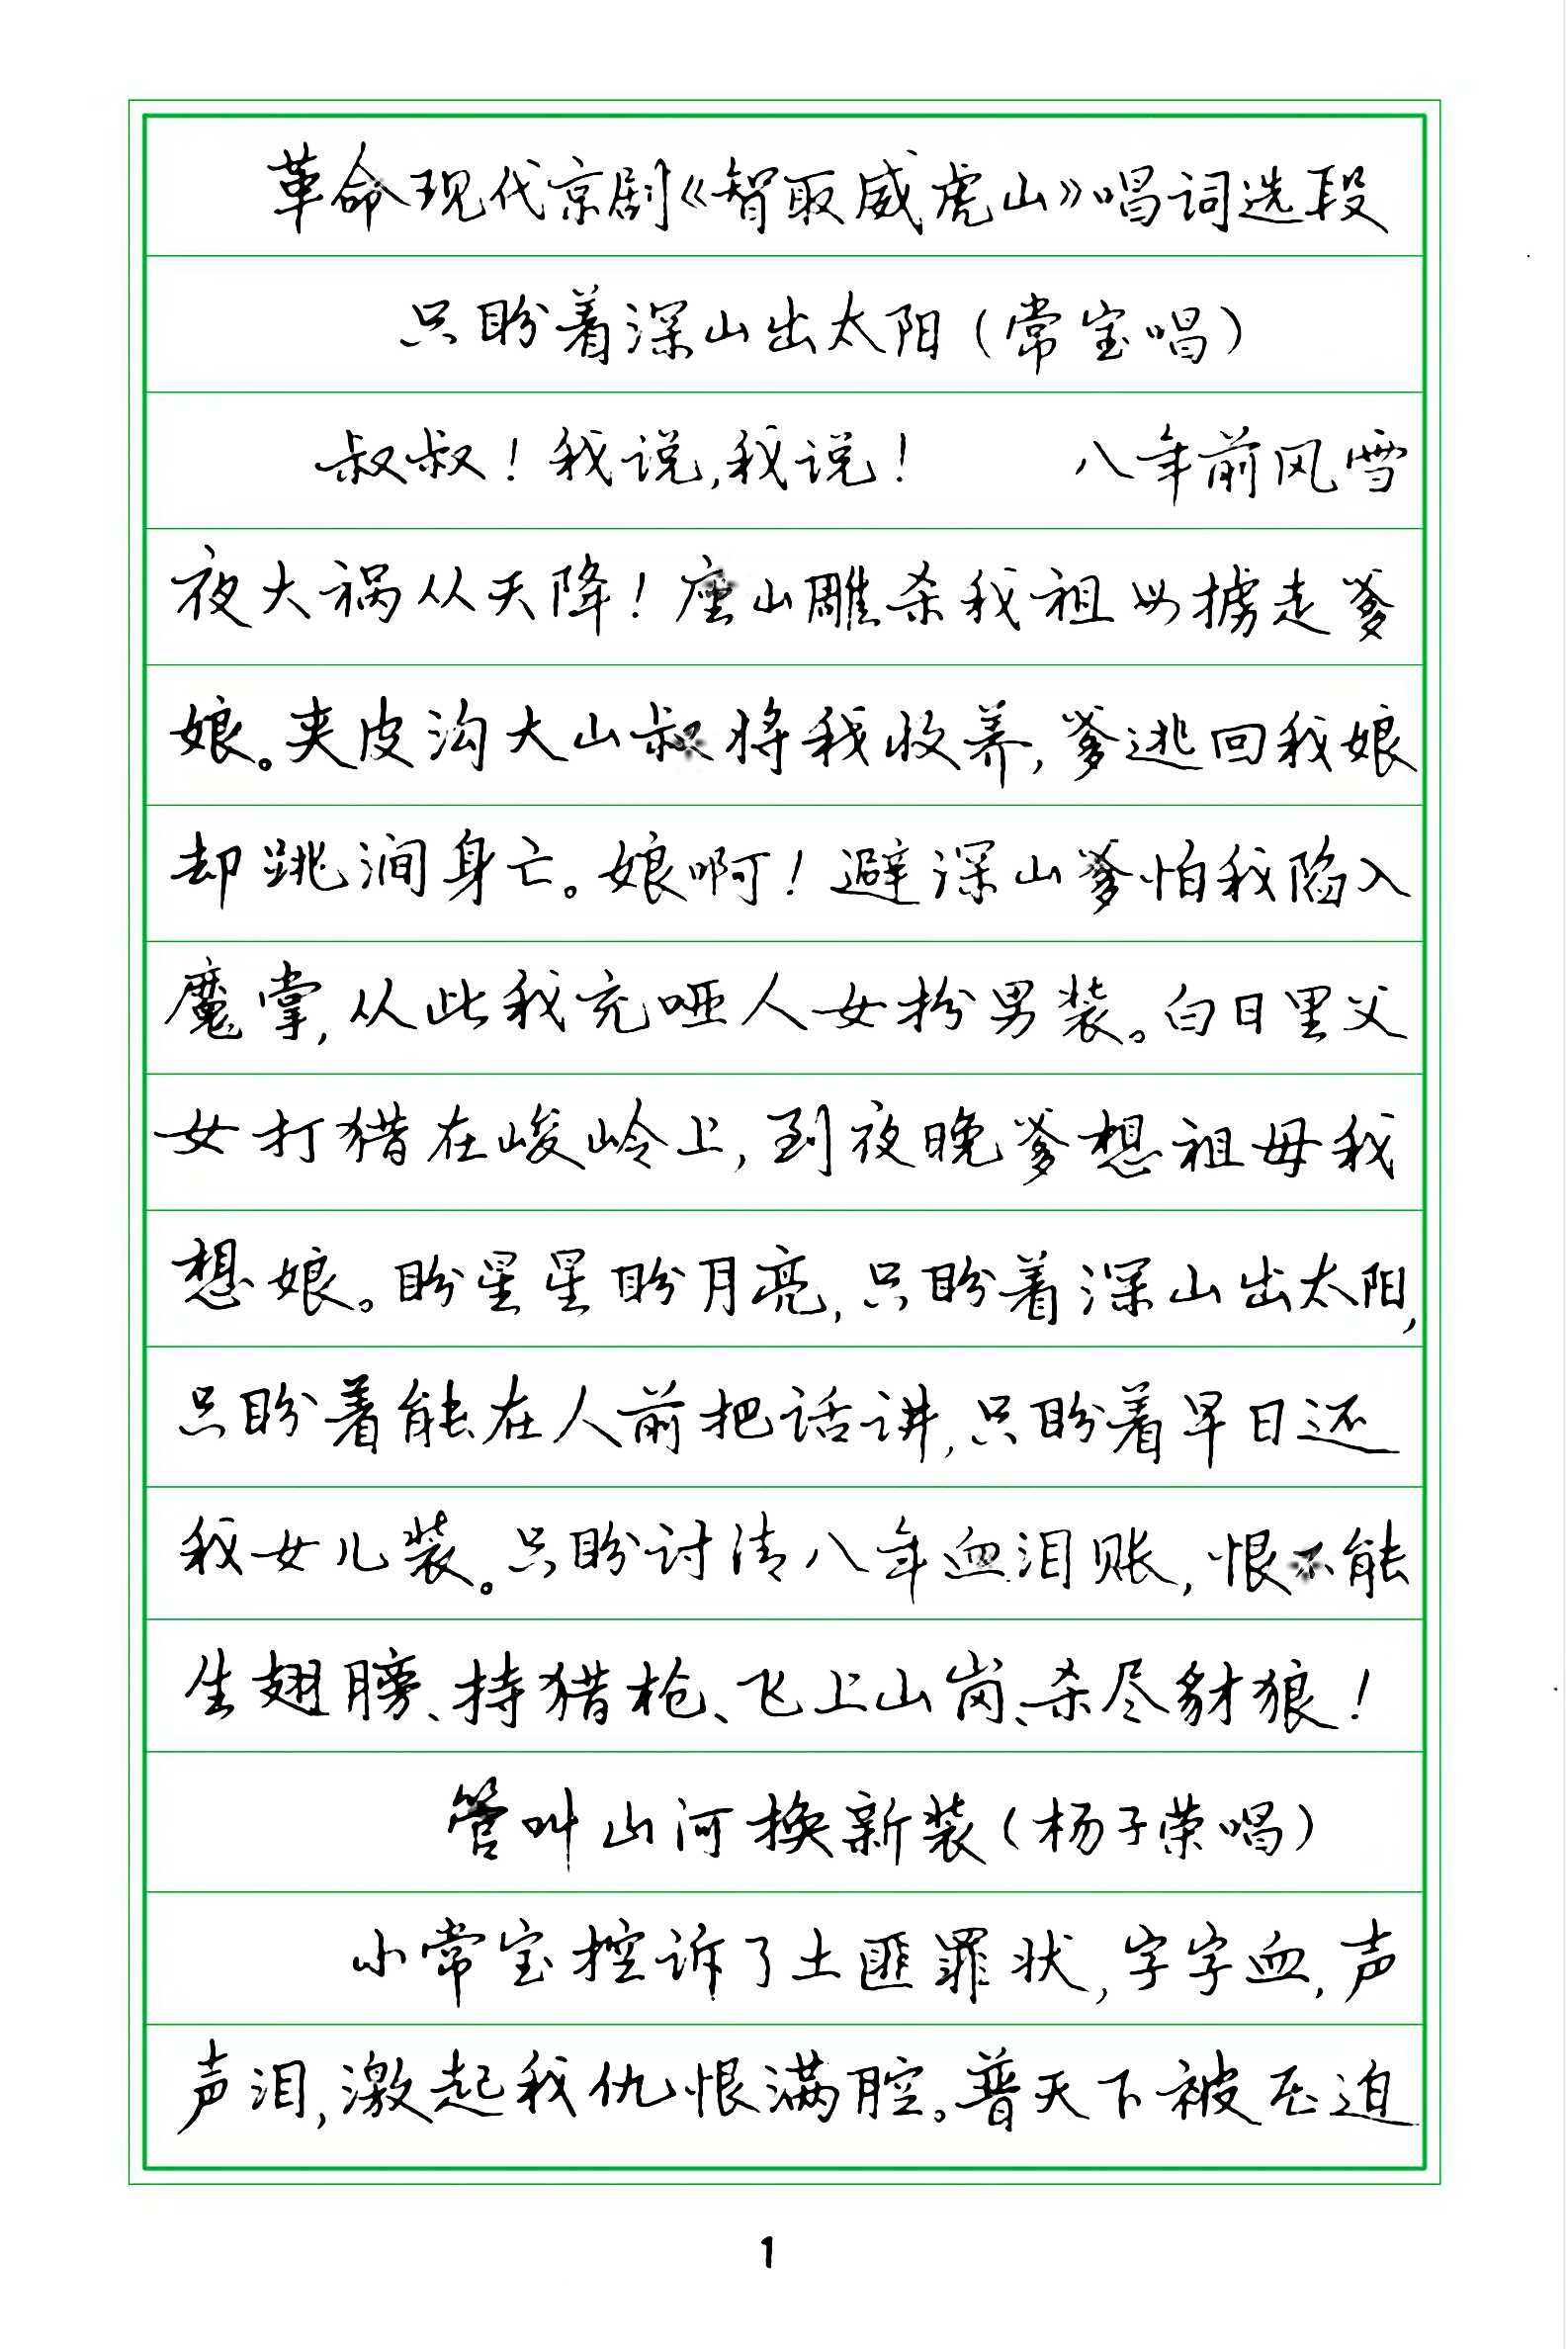 革命现代京剧《智取威虎山》唱词选段
只盼着深山出太阳(常宝唱)
叔叔!我说,我说! 八年前风雪
夜大祸从天降!座山雕杀我祖母掳走爹
娘。夹皮沟大山叔将我收养,爹逃回我娘
却跳涧身亡。娘啊!避深山爹怕我陷入
魔掌,从此我充哑人女扮男装。白日里父
女打猎在峻岭上,到夜晚爹想祖母我
想娘。盼星星盼月亮,只盼着深山出太阳,
只盼着能在人前把话讲,只盼着早日还
我女儿装。只盼讨清八年血泪账,恨不能
生翅膀、持猎枪、飞上山岗、杀尽豺狼!
管叫山河换新装(杨子荣唱)
小常宝控诉了土匪罪状,字字血,声
声泪,激起我仇恨满腔。普天下被压迫
1